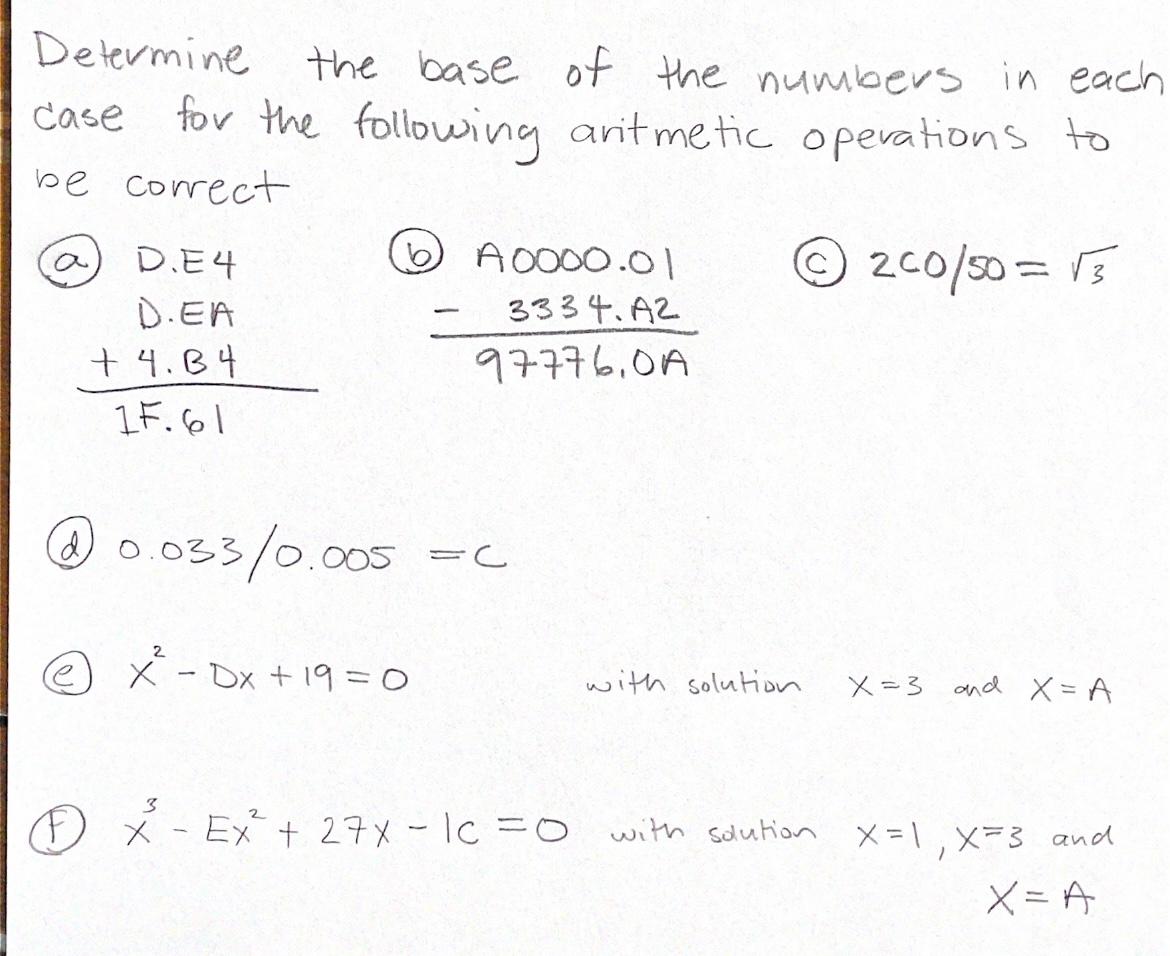 Determine the base of the numbers in each
case for the following aritmetic operations to
be correct
(a) D.E4
D.EA
+ 4.B4
1F.61
(b) A0000.01
- 3334.A2
97776.0A
(c) 2C0/50 = √3
(d) 0.033/0.005 = C
(e) x² - Dx + 19 = 0 with solution x=3 and x=A
(f) x³ - Ex² + 27x - 1C = 0 with solution x=1, x=3 and
x=A